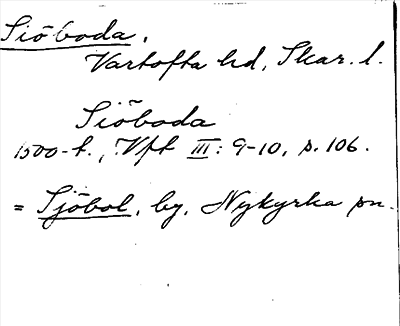 Siöboda.
Vartofta hd, Skar. l.
Siöboda
1500-t., Vft III: 9-10, p. 106.
= Sjöbol, by, Nykyrka sn.